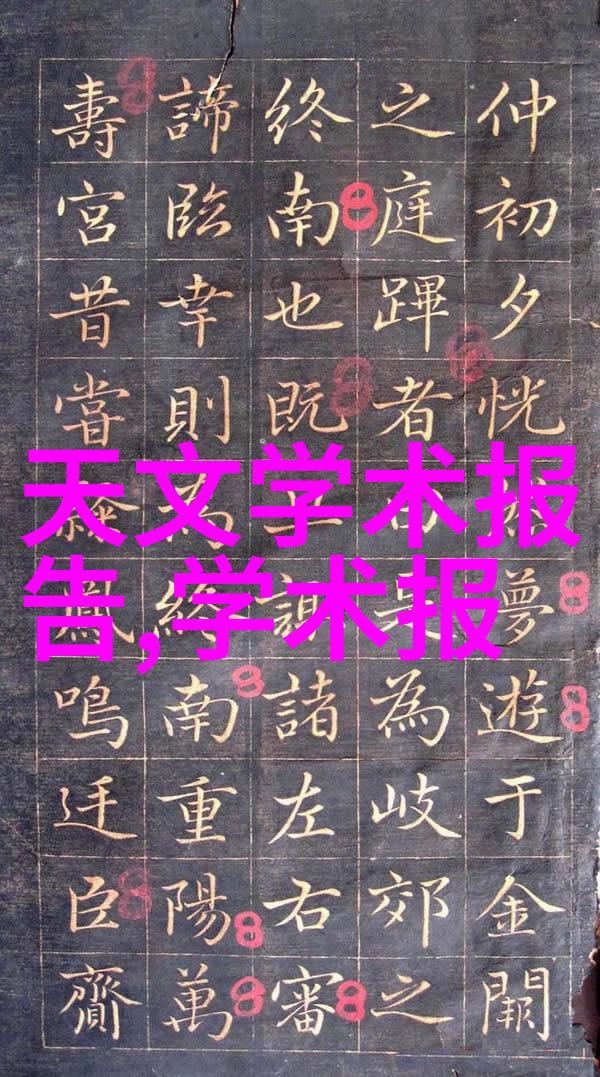 天文学术报
告,学术报
仲初夕恍夢遊于金闕
之庭蹕者是為岐郊之
終南也既諸左右審
諦臨幸則為終南重陽萬
壽宮昔嘗鳳鳴迋臣齎